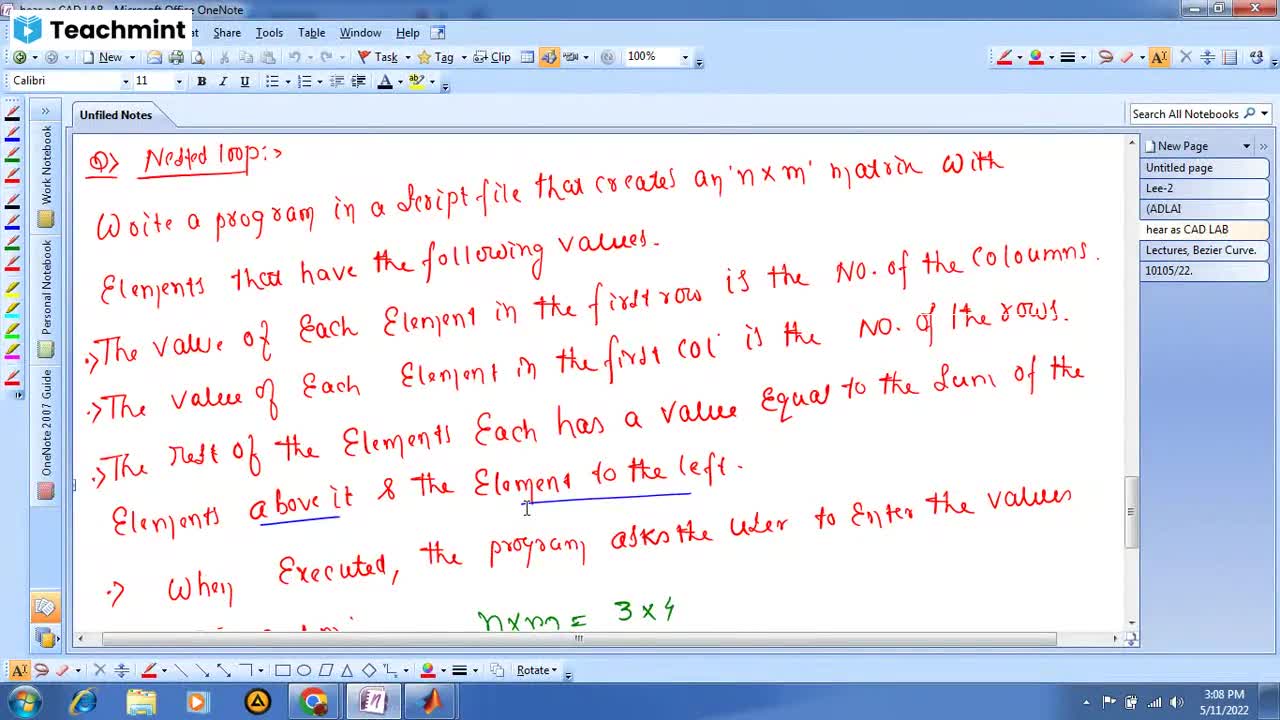 hear as CAD LAB - Microsoft Office OneNote
Teachmint
Share Tools Table Window Help
New Task Tag Clip 100%
Calibri 11 B I U
Unfiled Notes
Search All Notebooks
New Page
Untitled page
Lee-2
(ADLAI
hear as CAD LAB
Lectures, Bezier Curve.
10105/22.
Work Notebook
Personal Notebook
OneNote 2007 Guide
Q> Nested loop:>
Write a program in a Script file that creates an 'n x m' matrix with
Elements that have the following values.
•> The value of Each Element in the first row is the NO. of the coloumns.
•> The value of Each Element in the first col is the NO. of the rows.
•> The rest of the Elements Each has a value Equal to the Sum of the
Elements above it & the Element to the left.
•> When Executed, the program asks the User to Enter the values
n x m = 3 x 4
Rotate
3:08 PM
5/11/2022